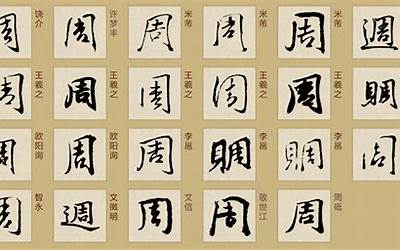 周 饶介 周 许梦丰 周 米芾 周 米芾 周 米芾 週
周 王羲之 周 王羲之 周 王羲之 周 王羲之 周 王羲之 賙
周 欧阳询 周 欧阳询 周 李邕 賙 李邕 賙 李邕 周
周 智永 週 文徵明 周 文信 周 敬世江 周 周砥